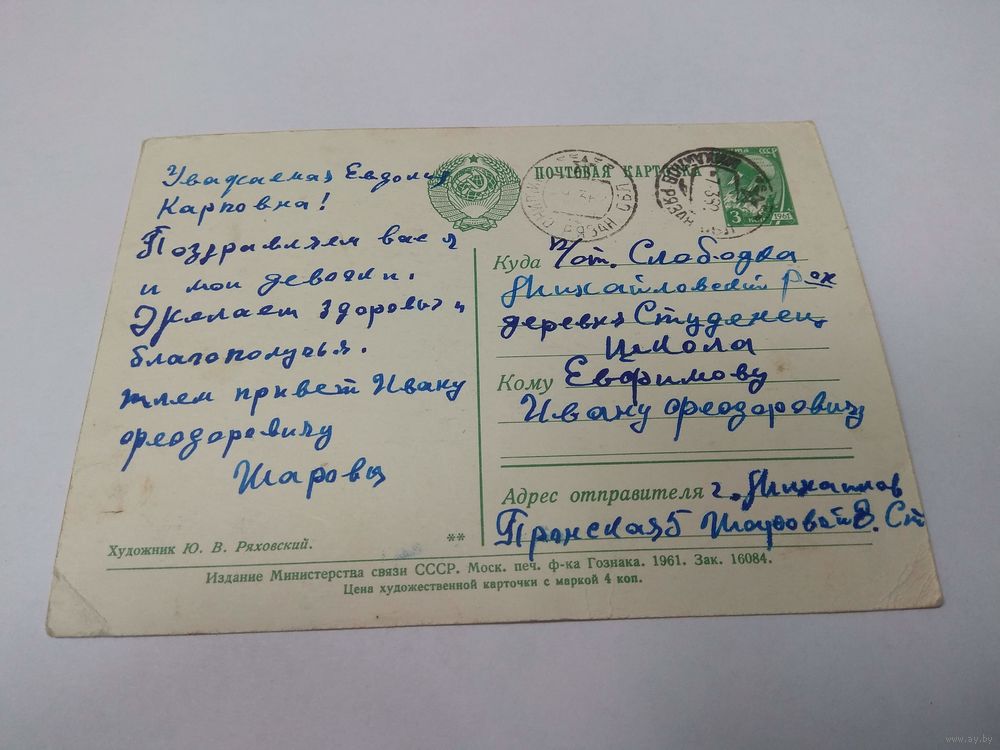 Уважаемая Евдокия
Карповна!
Поздравляем вас я
и мои девочки.
Желаем здоровья и
благополучья.
Шлем привет Ивану
Феодоровичу
Шаровы
Художник Ю. В. Ряховский.
**
ПОЧТОВАЯ КАРТОЧКА
ПОЧТА СССР
3 КОП 1961
Куда п/от. Слободка
Михайловский р-он
деревня Студенец
школа
Кому Евфимову
Ивану Феодоровичу
Адрес отправителя г. Михайлов
Пронская 5 Шаровой В. Ст
Издание Министерства связи СССР. Моск. печ. ф-ка Гознака. 1961. Зак. 16084.
Цена художественной карточки с маркой 4 коп.
www.ay.by